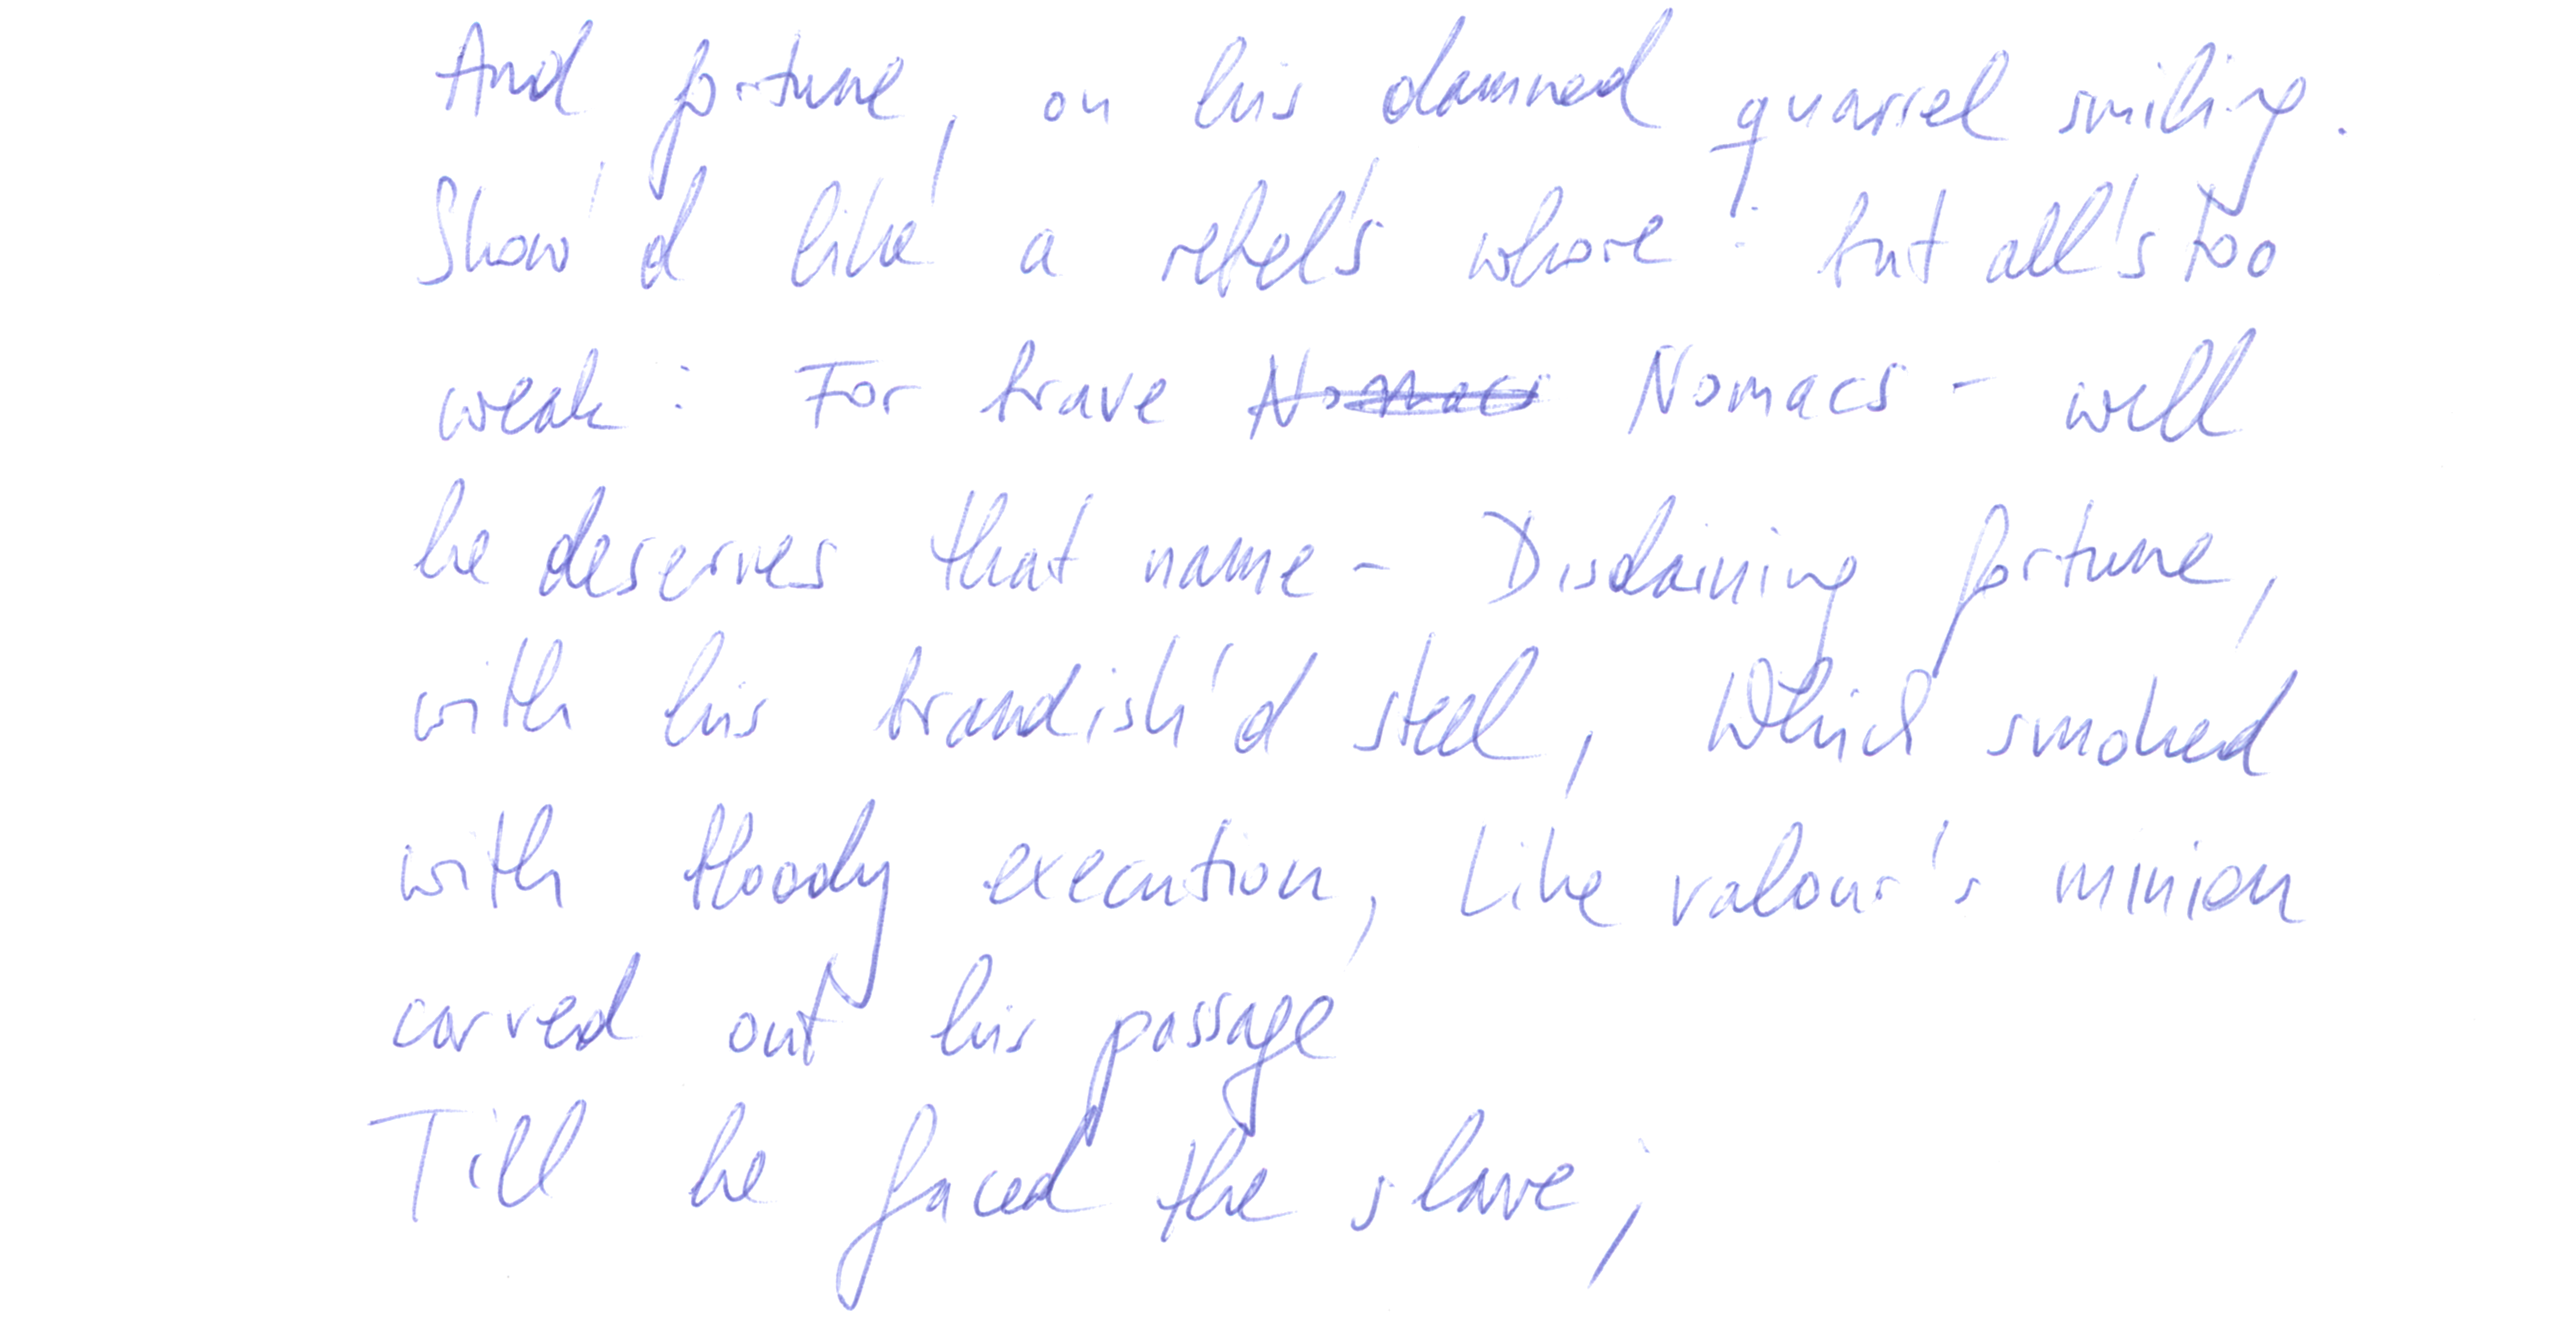 And fortune, on his damned quarrel smiling.
Show'd like a rebel's whore : but all's too
weak : For brave Nomacs Nomacs - well
he deserves that name - Disdaining fortune,
with his brandish'd steel, Which smoked
with bloody execution, Like valour's minion
carved out his passage
Till he faced the slave;